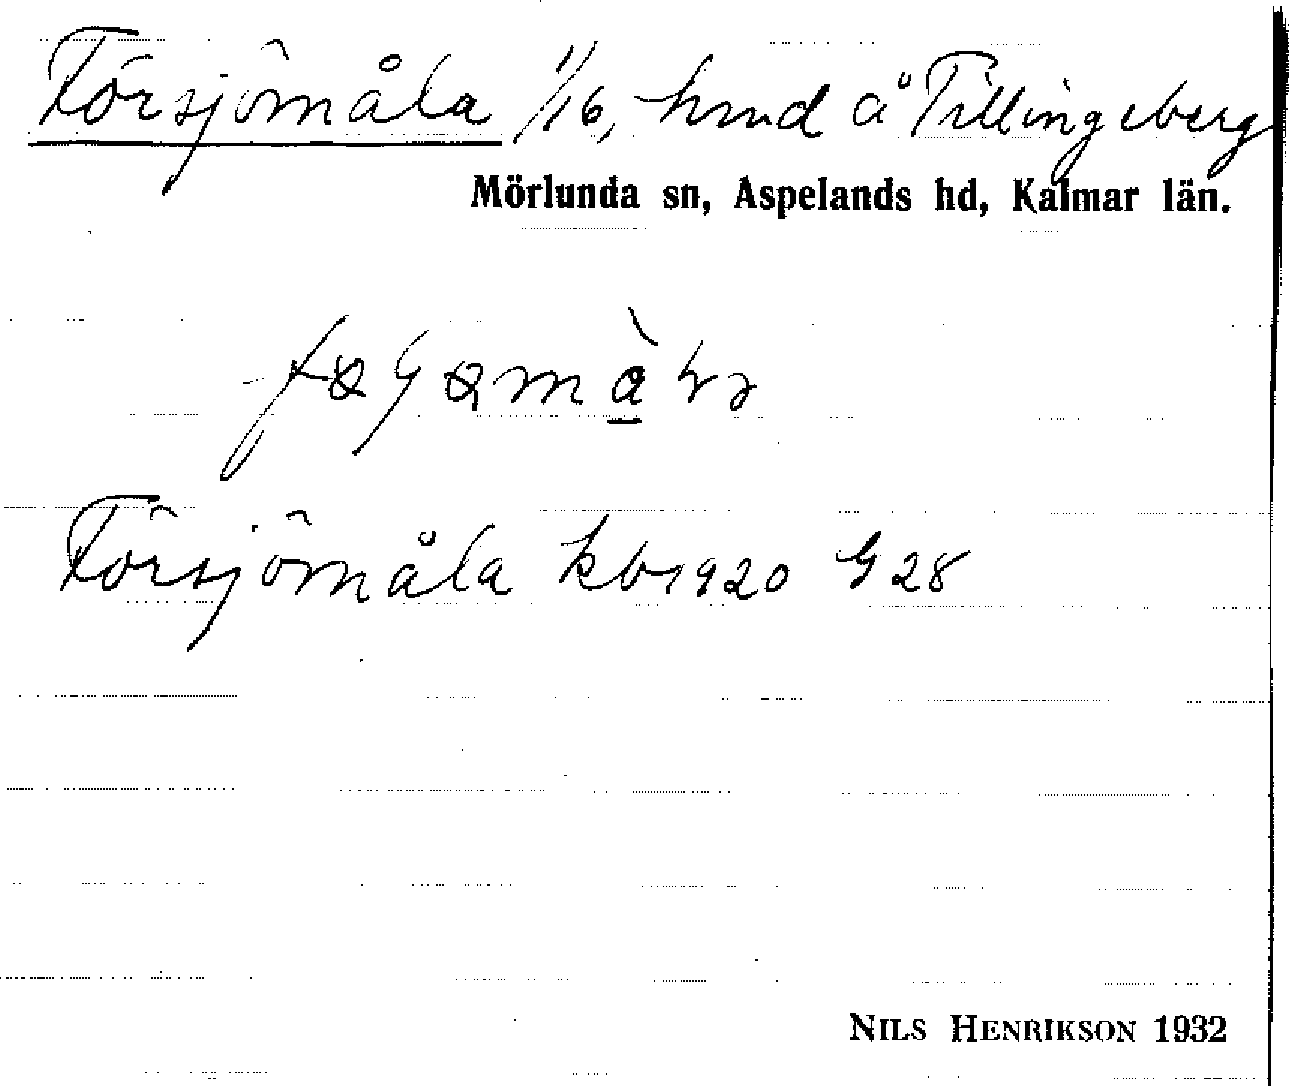 Försjömåla 1/16, hmd å Tillingeberg
Mörlunda sn, Aspelands hd, Kalmar län.
Försjömåla kb 1920 G 28
NILS HENRIKSON 1932